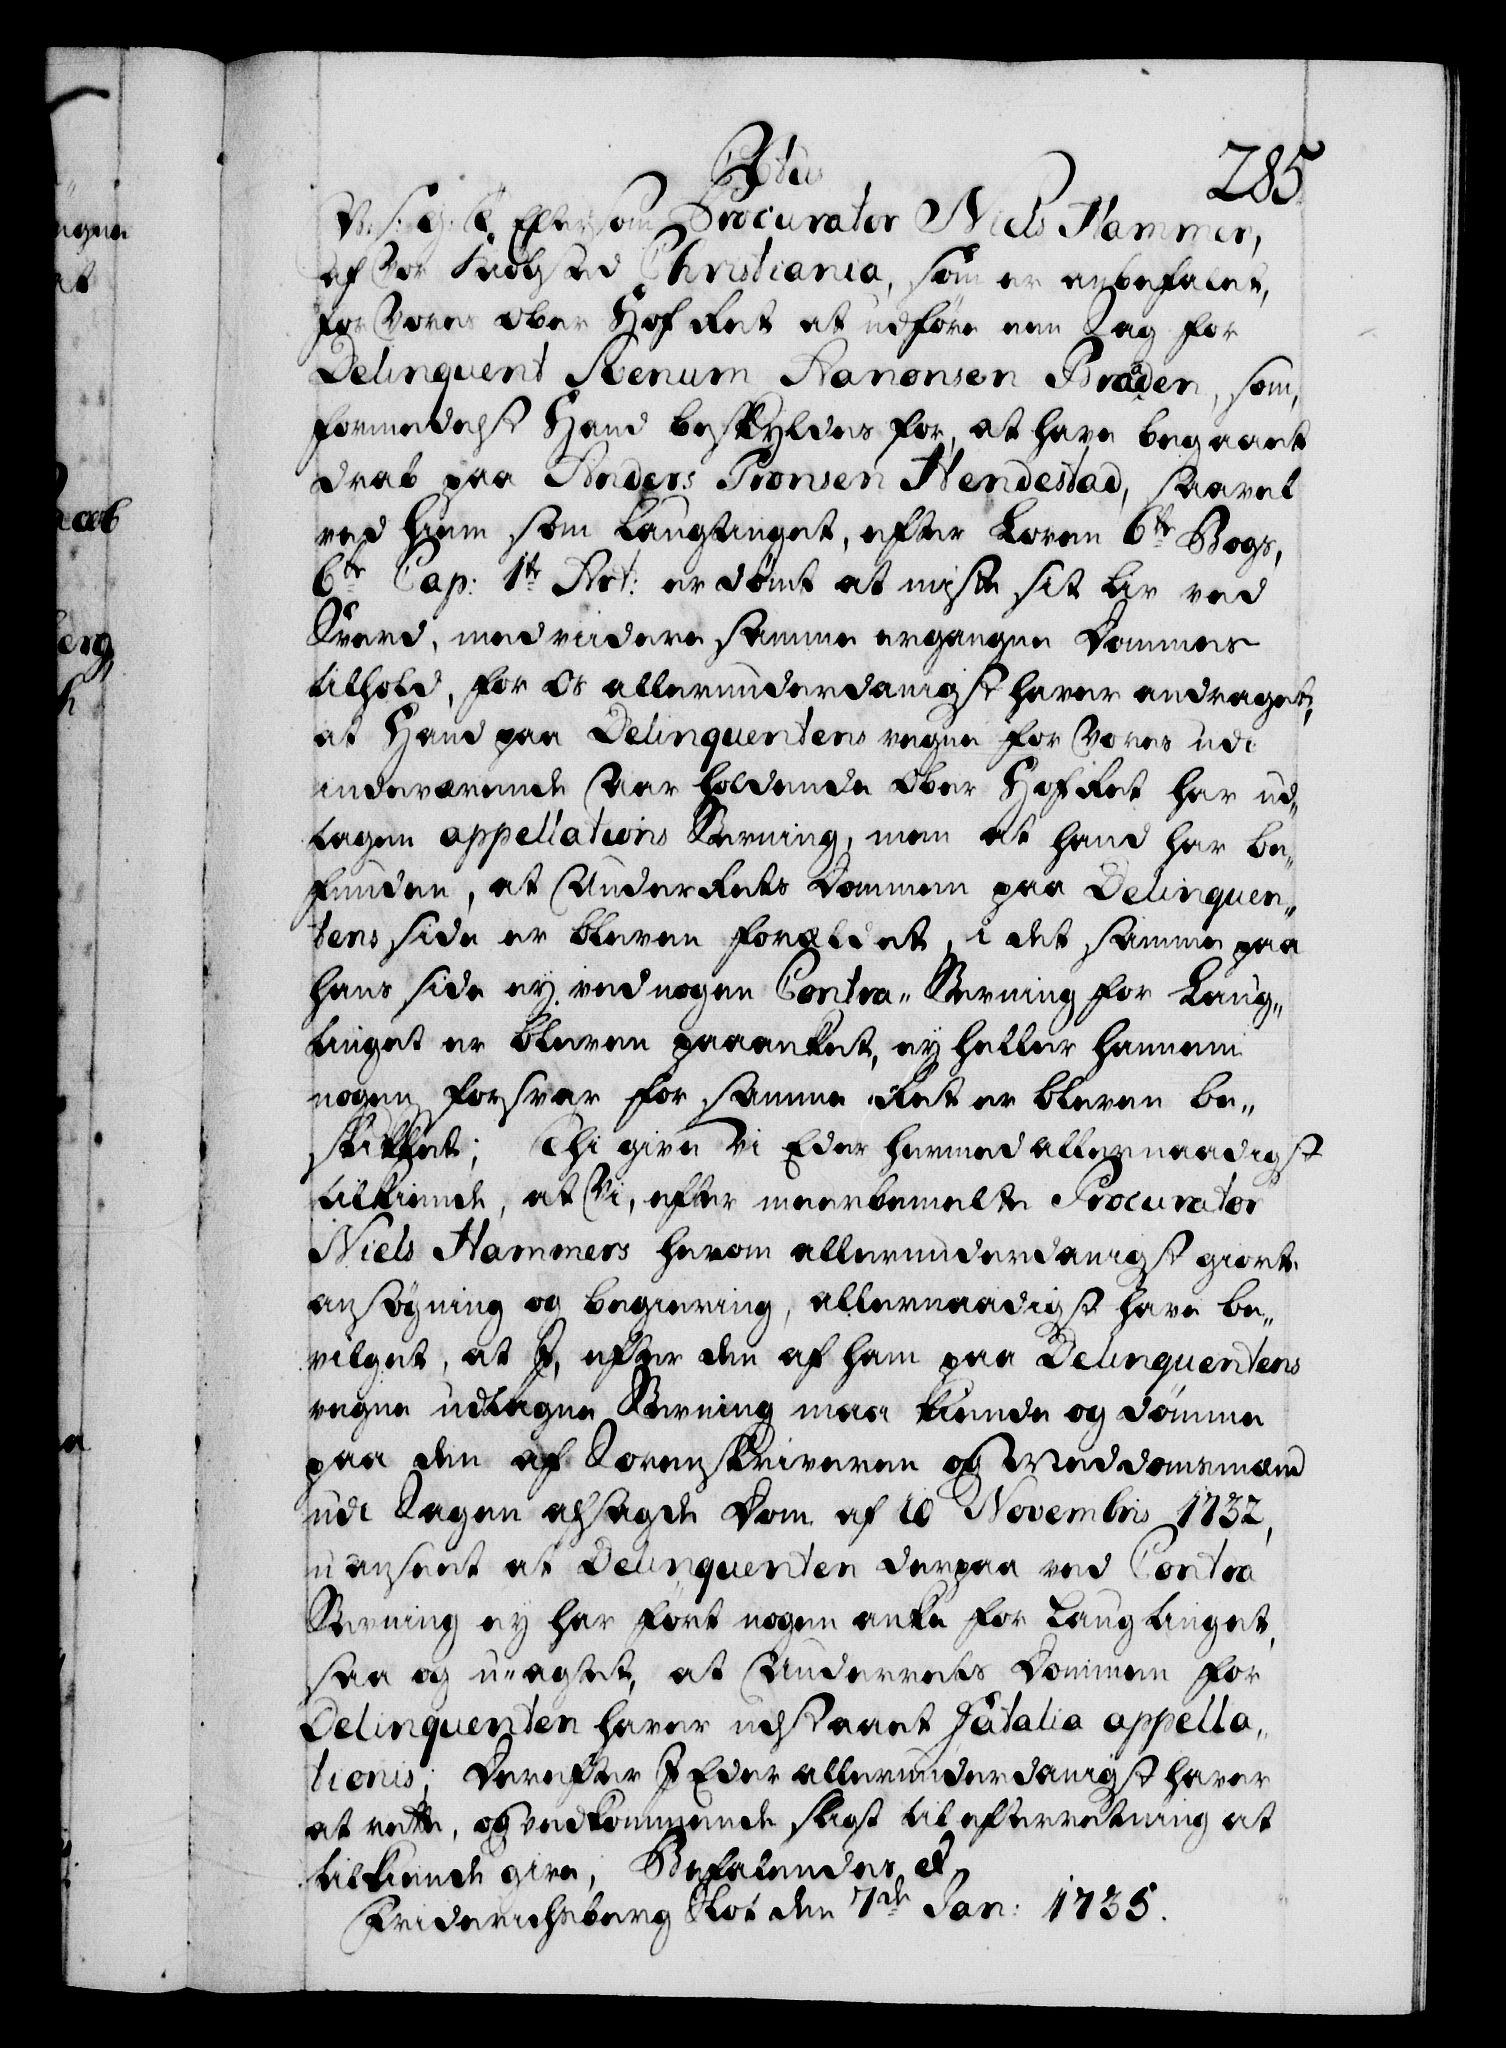 285
C6tus
V. S. G. T. Eftersom Procurator Niels Hammer,
af Vor Kiøbsted Christiania, som er anbefalet,
for Vores Ober Hof Ret at udføre een Sag for
Delinquent Stenum Aanonsen Braaden, som,
formedelst Hand beskyldes for, at have begaaet
drab paa Anders Tronsen Hendestad, saavel
ved hiem som Laugtinget, efter Loven 6te Bogs,
6te Cap: 1te Art: er dømt at miste sit Liv ved
Sverd, med viidere samme ergangne Dommes
tilhold, for Os allerunderdanigst haver andraget,
at Hand paa Delinquentens vegne for Vores udi
indeværende Aar holdende Ober Hof Ret har ud„
tagen appellations Stevning, men at hand har be„
funden, at Under Rets Dommen paa Delinquen„
tens side er bleven forældet, i det samme paa
hans side ey ved nogen Contra„ Stevning for Laug„
tinget er bleven paaanket, ey heller hannem
nogen forsvar for samme Ret er bleven be„
skikket; Thi give Vi Eder hermed allernaadigst
tilkiende, at Vi, efter meerbemelte Procurator
Niels Hammers herom allerunderdanigst giorte
ansøgning og begiering, allernaadigst have be„
vilget, at I, efter den af ham paa Delinquentens
vegne udtagne Stevning maa kiende og dømme
paa den af Sorenskriveren og Meddomsmænd
udi Sagen afsagde Dom af 10 Novembris 1732,
uanseet at Delinquenten derpaa ved Contra
Stevning ey har ført nogen anke for Laugtinget,
saa og u-agtet, at Underrets Dommen for
Delinquenten haver udstaaet fatalia appella„
tionis; Derefter I Eder allerunderdanigst haver
at rette, og vedkommende sligt til efterretning at
tilkiende give, Befalendes etc.
Friderichsberg Slot den 7de Jan: 1735.